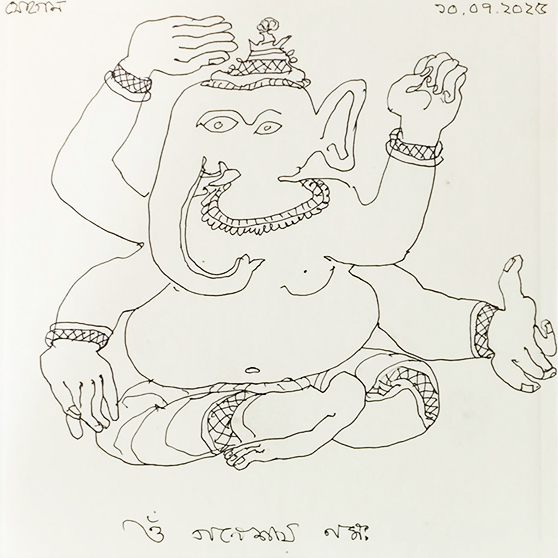 ১০.০৭.২০২৫
ওঁ গণেশায় নমঃ